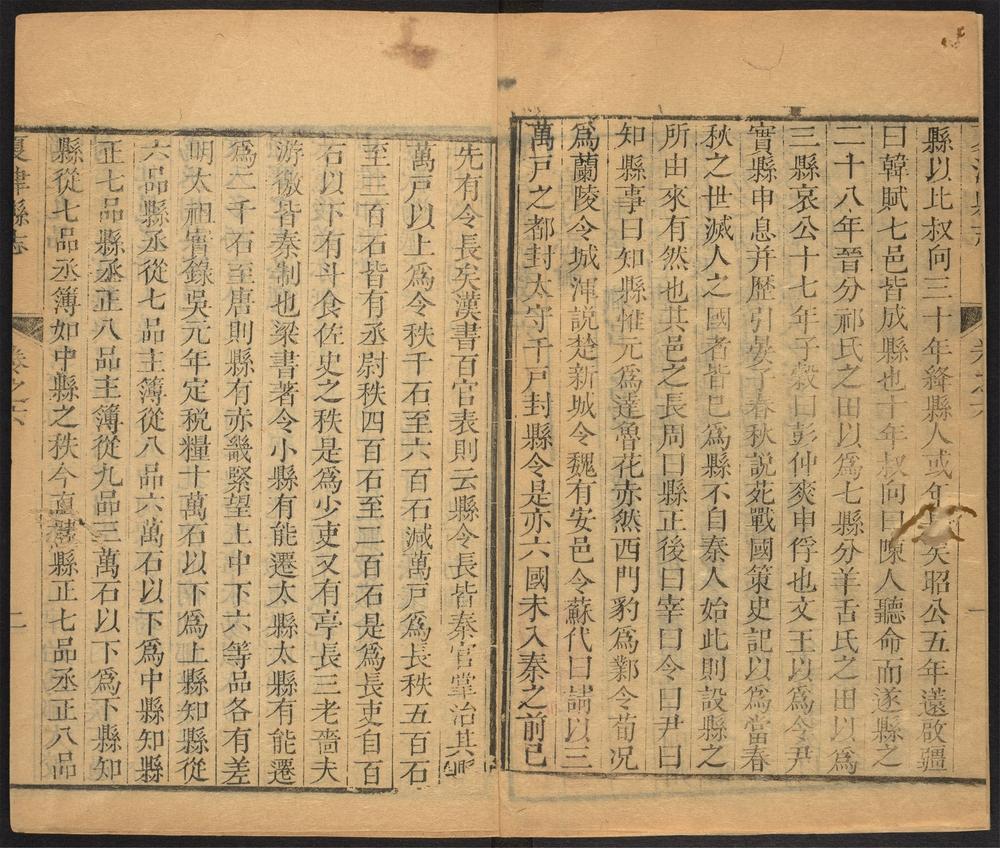 縣以比叔向三十年絳縣人或年長矣昭公五年薳啟疆
曰韓賦七邑皆成縣也十年叔向曰陳人聽命而遂縣之
二十八年晉分祁氏之田以爲七縣分羊舌氏之田以爲
三縣哀公十七年子穀曰彭仲爽申俘也文王以爲令尹
實縣申息并歷引晏子春秋說苑戰國策史記以爲當春
秋之世滅人之國者皆已爲縣不自秦人始此則設縣之
所由來有然也其邑之長周曰縣正後曰宰曰令曰尹曰
知縣事曰知縣惟元爲達魯花赤然西門豹爲鄴令荀况
爲蘭陵令城渾說楚新城令魏有安邑令蘇代曰請以三
萬戸之都封太守千戸封縣令是亦六國未入秦之前已
先有令長矣漢書百官表則云縣令長皆秦官掌治其縣
萬戸以上爲令秩千石至六百石減萬戸爲長秩五百石
至三百石皆有丞尉秩四百石至二百石是爲長吏自百
石以下有斗食佐史之秩是爲少吏又有亭長三老嗇夫
游徼皆秦制也梁書著令小縣有能遷大縣大縣有能遷
爲二千石至唐則縣有赤畿緊望上中下六等品各有差
明太祖實錄吳元年定税糧十萬石以下爲上縣知縣從
六品縣丞從七品主簿從八品六萬石以下爲中縣知縣
正七品縣丞正八品主簿從九品三萬石以下爲下縣知
縣從七品丞簿如中縣之秩今直隸縣正七品丞正八品
夏津縣志
卷之六
二